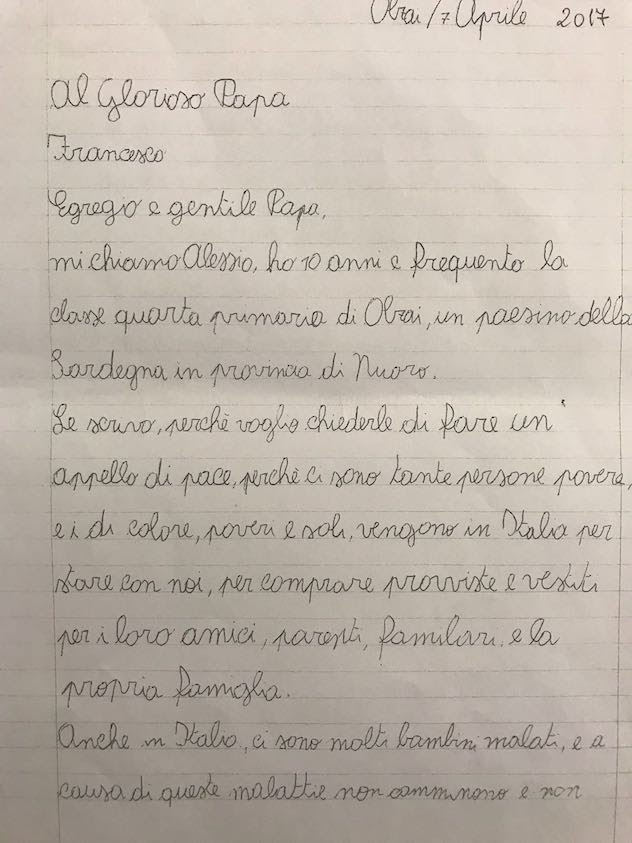 Olzai/7 Aprile 2017
Al Glorioso Papa
Francesco
Egregio e gentile Papa,
mi chiamo Alessio, ho 10 anni e frequento la
classe quarta primaria di Olzai, un paesino della
Sardegna in provincia di Nuoro.
Le scrivo, perchè voglio chiederle di fare un
appello di pace, perchè ci sono tante persone povere,
e i di colore, poveri e soli, vengono in Italia per
stare con noi, per comprare provviste e vestiti
per i loro amici, parenti, familiari, e la
propria famiglia.
Anche in Italia, ci sono molti bambini malati, e a
causa di queste malattie non camminono e non